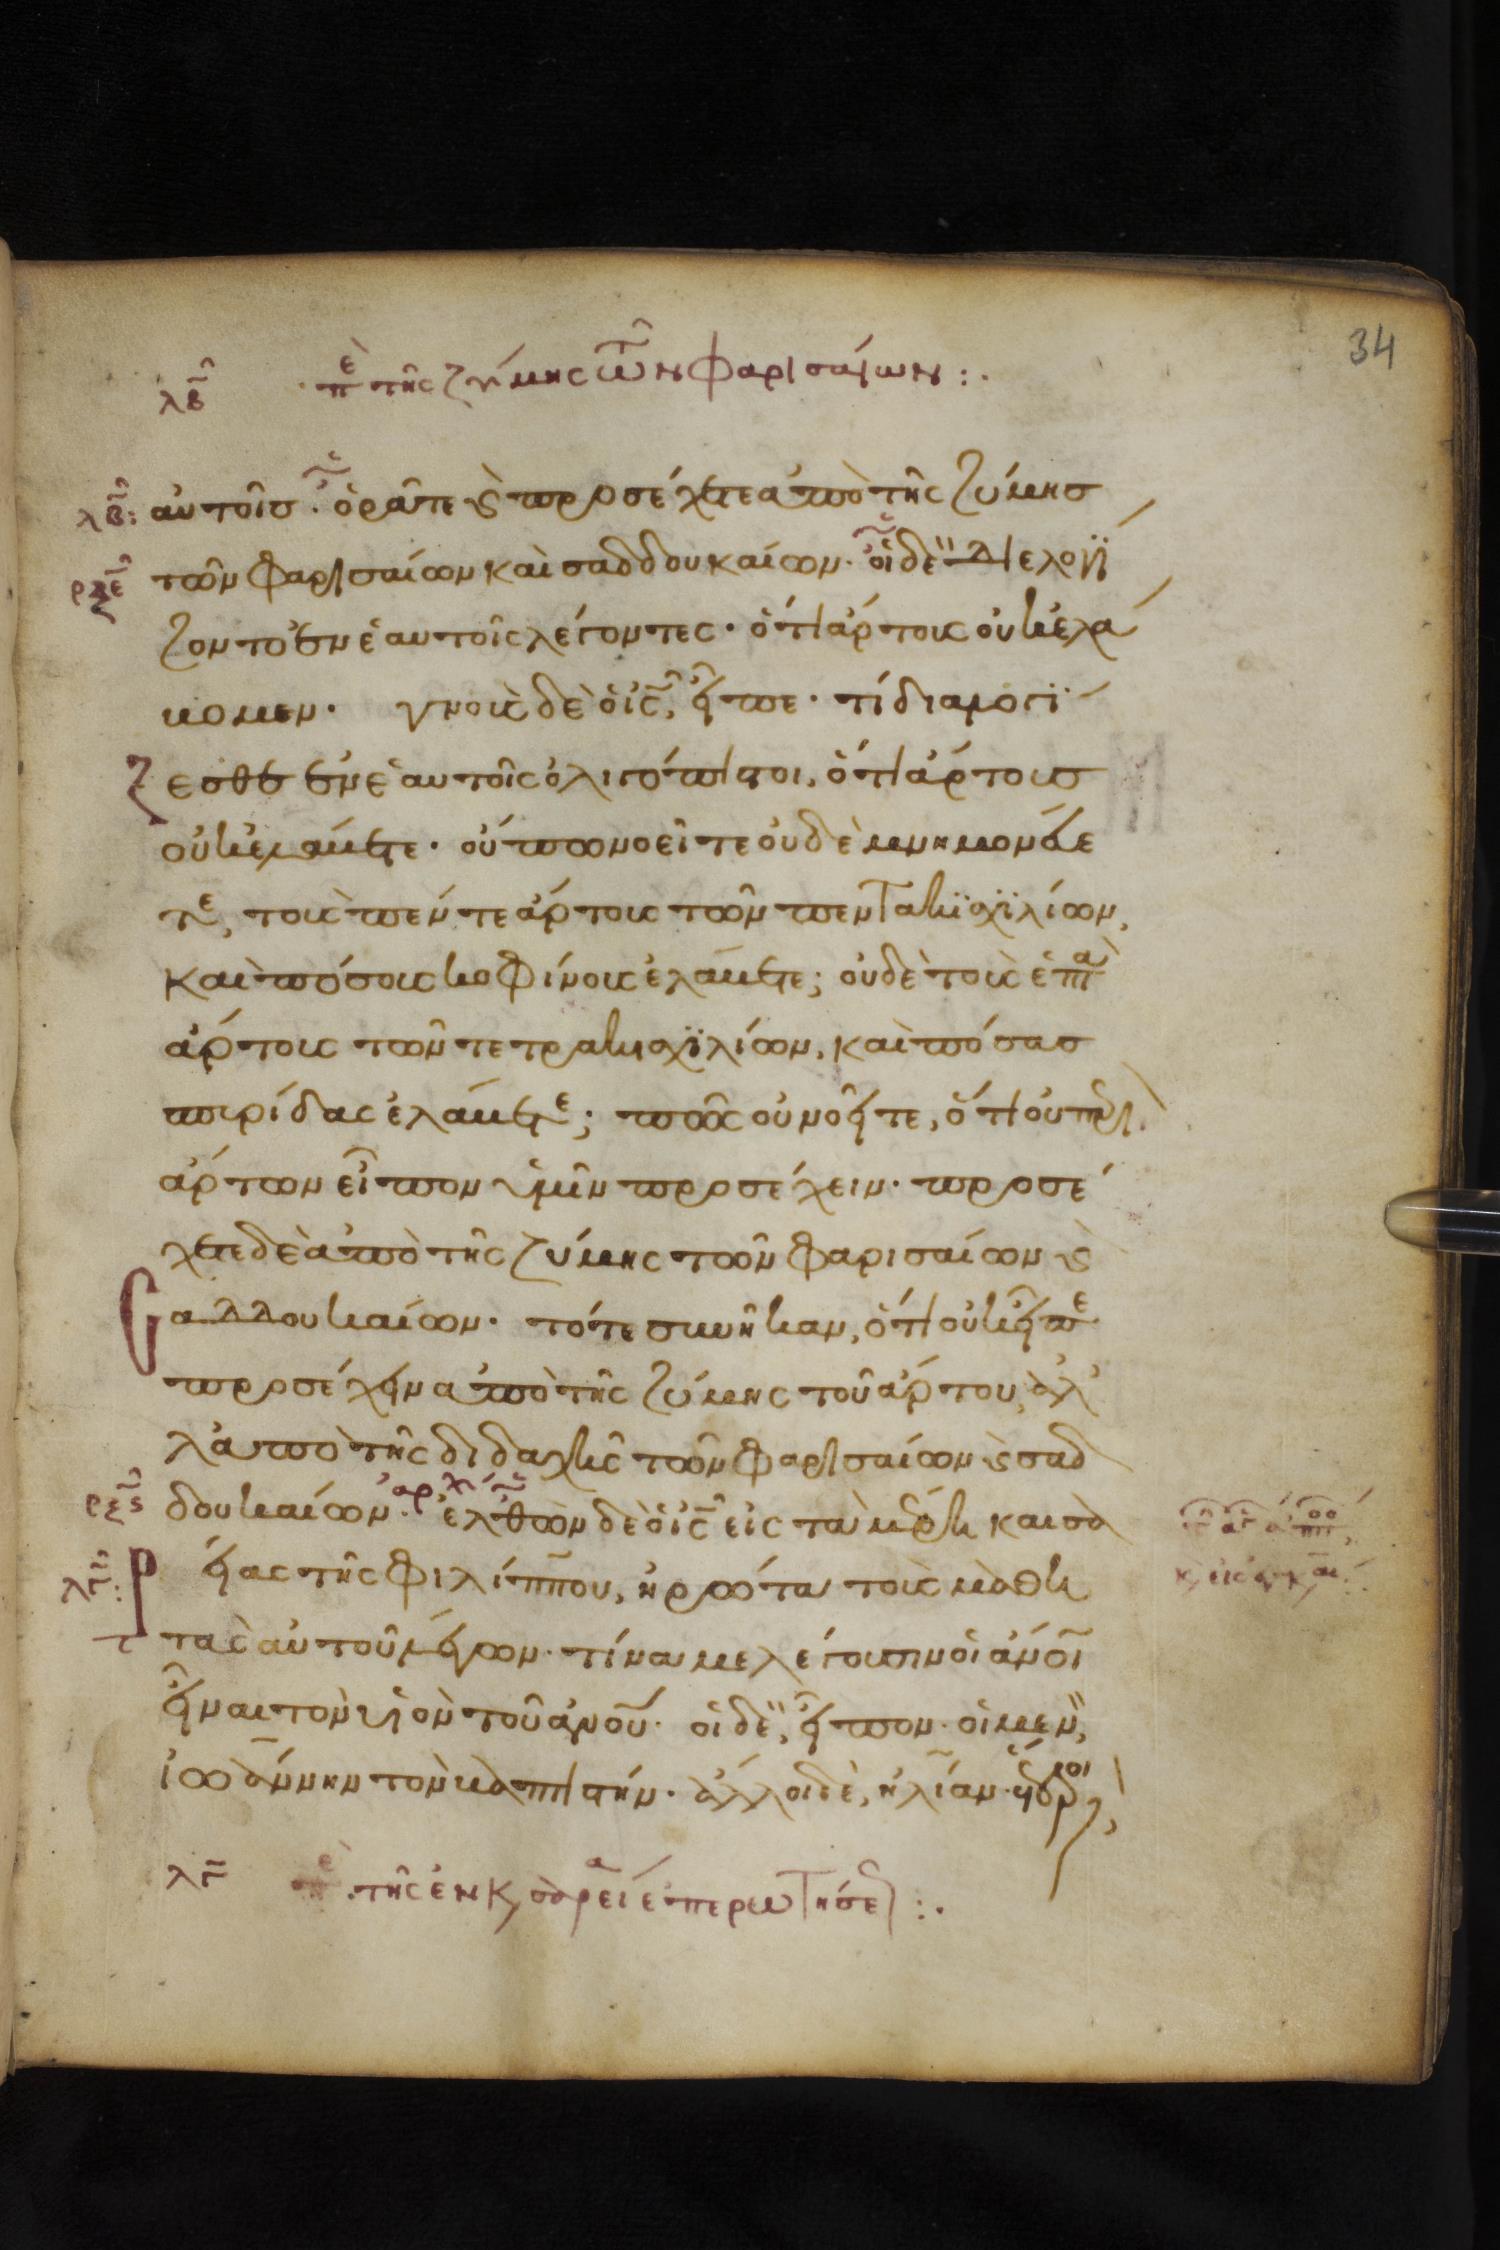 34
λβ περὶ τῆς ζύμης τῶν φαρισαίων :.
λβ: αὐτοῖσ· ὁρᾶτε καὶ προσέχετε ἀπὸ τῆς ζύμησ
ρξε τῶν φαρισαίων καὶ σαδδουκαίων· οἱ δὲ διελογΐ
ζοντο ἐν ἑαυτοῖς λέγοντες· ὅτι ἄρτους οὐκ ἐλά
βομεν· γνοὺς δὲ ὁ ις, εἶπε· τί διαλογΐ
ζεσθε ἐν ἑαυτοῖς ὀλιγόπιστοι, ὅτι ἄρτουσ
οὐκ ἐλάβετε· οὔπω νοεῖτε οὐδὲ μνημονεύε
τε, τοὺς πέντε ἄρτους τῶν πεντακϊσχϊλίων,
καὶ πόσους κοφίνους ἐλάβετε; οὐδὲ τοὺς ἑπτὰ
ἄρτους τῶν τετρακισχϊλίων, καὶ πόσασ
σπυρίδας ἐλάβετε; πῶς οὐ νοεῖτε, ὅτι οὐ περὶ
ἄρτων εἶπον ὑμῖν προσέχειν· προσέ
χετε δὲ ἀπὸ τῆς ζύμης τῶν φαρισαίων καὶ
σαδδουκαίων· τότε συνῆκαν, ὅτι οὐκ εἶπε
προσέχειν ἀπὸ τῆς ζύμης τοῦ ἄρτου, ἀλ
λὰ ἀπὸ τῆς διδαχῆς τῶν φαρισαίων καὶ σαδ
ρξς δουκαίων· ἀρχ ἐλθὼν δὲ ὁ ις εἰς τὰ μέρη καισα
λγ: ρείας τῆς φιλίππου, ἠρώτα τοὺς μαθη
τὰς αὐτοῦ λέγων· τίνα με λέγουσιν οἱ ανοι
εἶναι τὸν υἱὸν τοῦ ανου· οἱ δὲ, εἶπον· οἱ μὲν,
ἰωάννην τὸν βαπτιστήν· ἄλλοι δὲ, ἠλίαν· ἕτεροι δὲ,
λγ περὶ τῆς ἐν καισαρείᾳ ἐπερωτήσεως :.